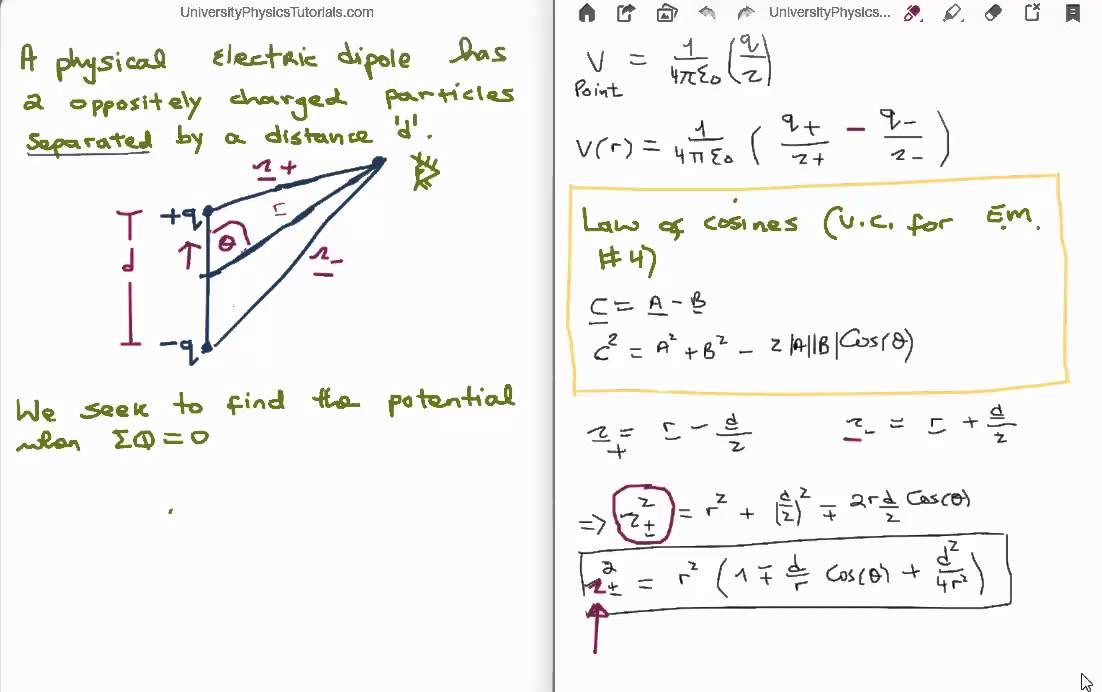 UniversityPhysicsTutorials.com
A physical electric dipole has
2 oppositely charged particles
separated by a distance 'd'.
𝓇+
+q
r
θ
d
𝓇-
-q
We seek to find the potential
when ΣQ = 0
UniversityPhysics...
V = 1/4πε0 (q/𝓇)
Point
V(r) = 1/4πε0 (q+/𝓇+ - q-/𝓇-)
Law of cosines (V.C. for E.M.
#4)
C = A - B
C² = A² + B² - 2|A||B|Cos(θ)
𝓇+ = r - d/2 𝓇- = r + d/2
=> 𝓇±² = r² + (d/2)² ∓ 2rd/2 Cos(θ)
𝓇±² = r² (1 ∓ d/r Cos(θ) + d²/4r²)